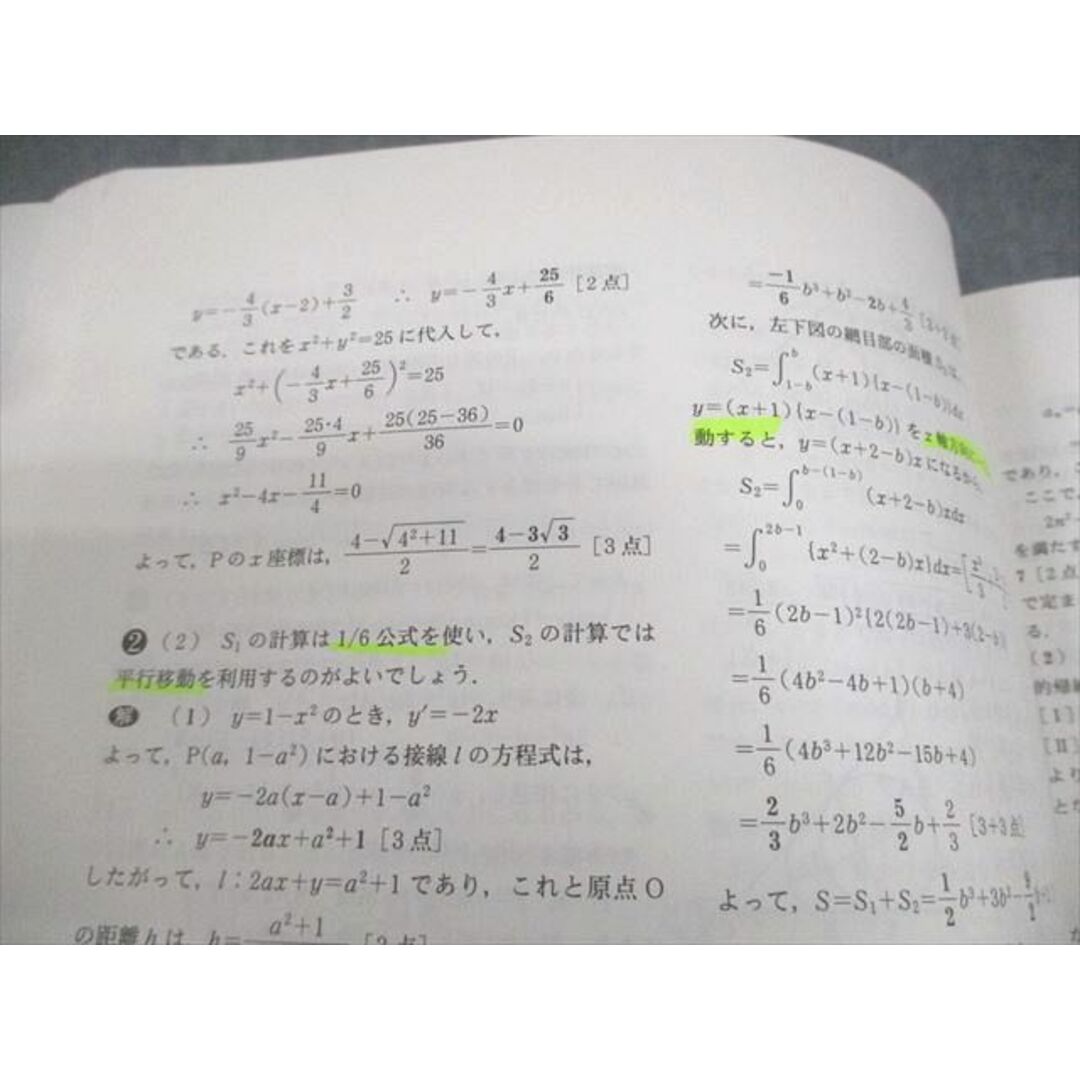 y=-4/3(x-2)+3/2 ∴ y=-4/3x+25/6 [2点]
である．これをx²+y²=25に代入して，
x²+(-4/3x+25/6)²=25
∴ 25/9x²-25・4/9x+25(25-36)/36=0
∴ x²-4x-11/4=0
よって，Pのx座標は，(4-√(4²+11))/2=(4-3√3)/2 [3点]
❷(2) S₁の計算は1/6公式を使い，S₂の計算では
平行移動を利用するのがよいでしょう．
解 (1) y=1-x²のとき，y′=-2x
よって，P(a, 1-a²)における接線lの方程式は，
y=-2a(x-a)+1-a²
∴ y=-2ax+a²+1 [3点]
したがって，l：2ax+y=a²+1であり，これと原点O
の距離hは，h=a²+1
=-1/6b³+b²-2b+4/3
次に，左下図の網目部の面積S₂は，
S₂=∫_{1-b}^{b}(x+1){x-(1-b)}dx
y=(x+1){x-(1-b)}をx軸方向に
動すると，y=(x+2-b)xになるから，
S₂=∫_{0}^{b-(1-b)}(x+2-b)xdx
=∫_{0}^{2b-1}{x²+(2-b)x}dx=[x³/3+
=1/6(2b-1)²{2(2b-1)+3(2-b)
=1/6(4b²-4b+1)(b+4)
=1/6(4b³+12b²-15b+4)
=2/3b³+2b²-5/2b+2/3 [3+3点]
よって，S=S₁+S₂=1/2b³+3b²-
であり，
ここで，
を満たす
7 [2点
で定ま
る．
(2)
的帰納
[I]
[II]
より
とな